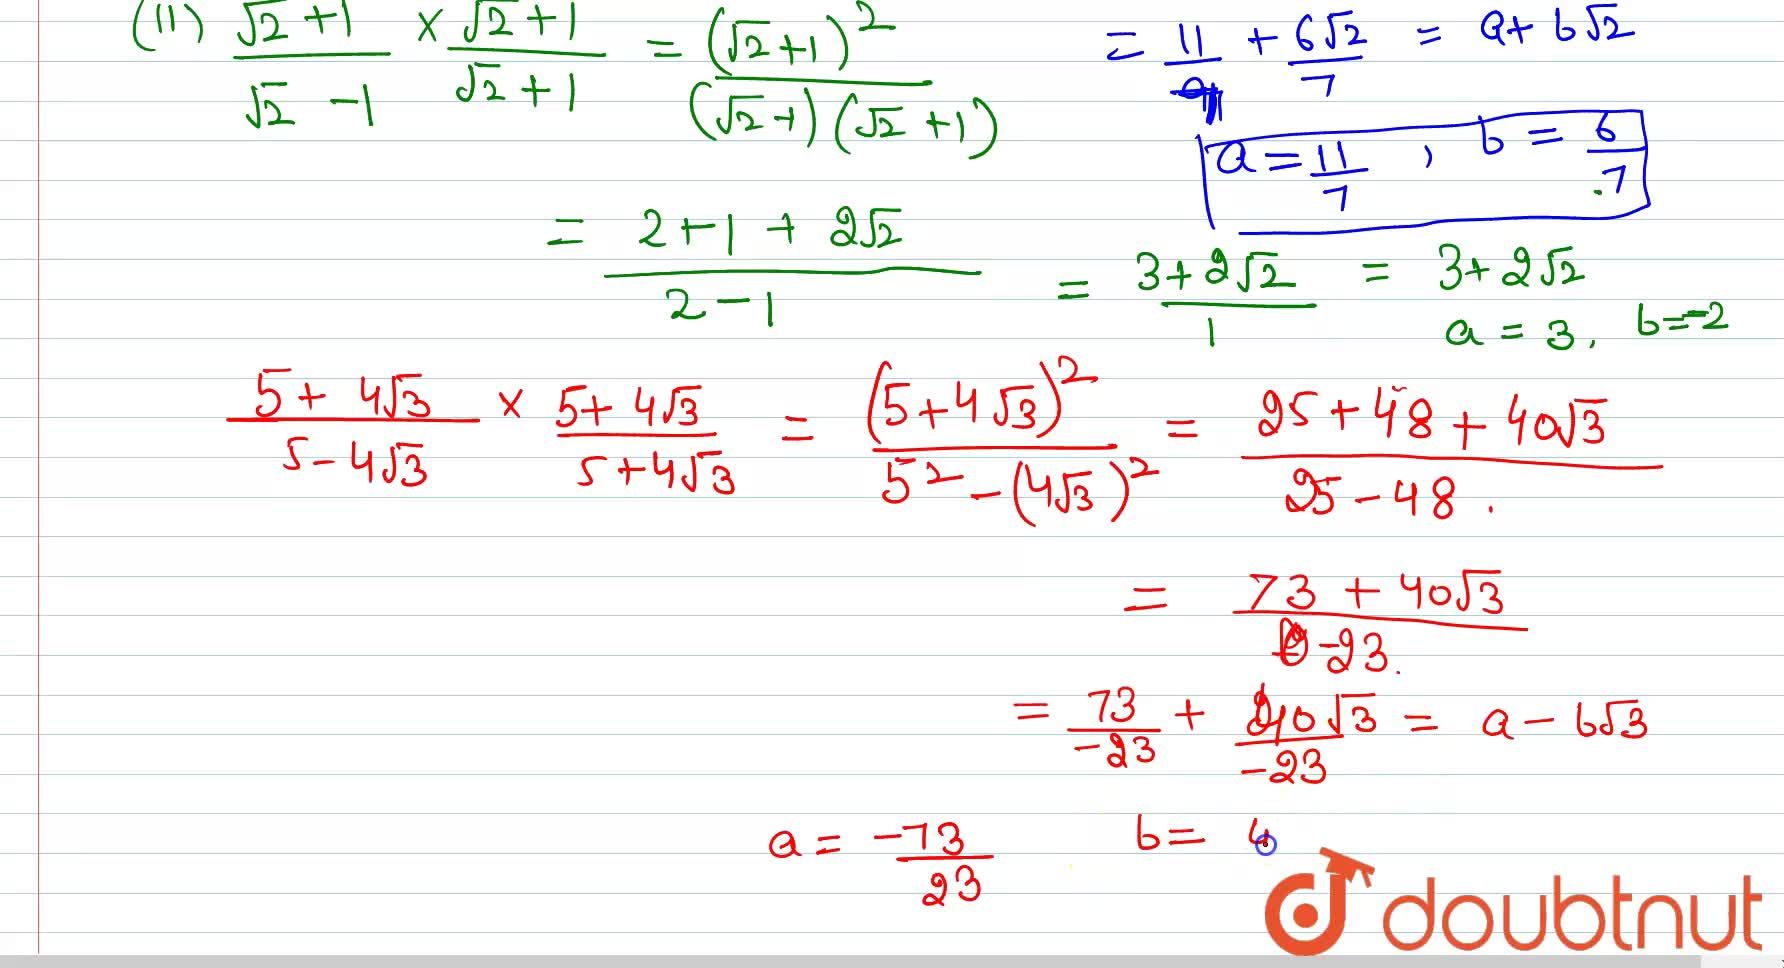 (11) (√2+1)/(√2-1) × (√2+1)/(√2+1) = (√2+1)²/((√2-1)(√2+1))
= 11/7 + 6√2/7 = a+b√2
a = 11/7 , b = 6/7
= (2+1+2√2)/(2-1) = (3+2√2)/1 = 3+2√2
a = 3, b=-2
(5+4√3)/(5-4√3) × (5+4√3)/(5+4√3) = (5+4√3)²/(5²-(4√3)²) = (25+48+40√3)/(25-48.)
= (73+40√3)/(-23.)
= 73/-23 + 40√3/-23 = a-b√3
a = -73/23 b= 4
doubtnut